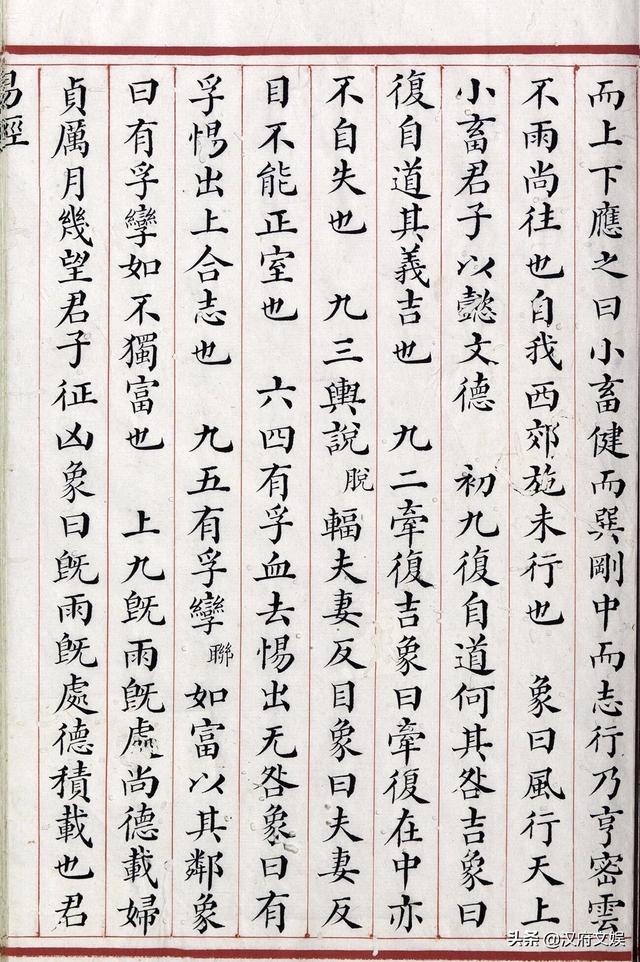 而上下應之曰小畜健而巽剛中而志行乃亨密雲
不雨尚往也自我西郊施未行也 象曰風行天上
小畜君子以懿文德 初九復自道何其咎吉象曰
復自道其義吉也 九二牽復吉象曰牽復在中亦
不自失也 九三輿說脫輻夫妻反目象曰夫妻反
目不能正室也 六四有孚血去惕出无咎象曰有
孚惕出上合志也 九五有孚攣聯如富以其鄰象
曰有孚攣如不獨富也 上九旣雨旣處尚德載婦
貞厲月幾望君子征凶象曰旣雨旣處德積載也君
易經
头条 @汉府文娱